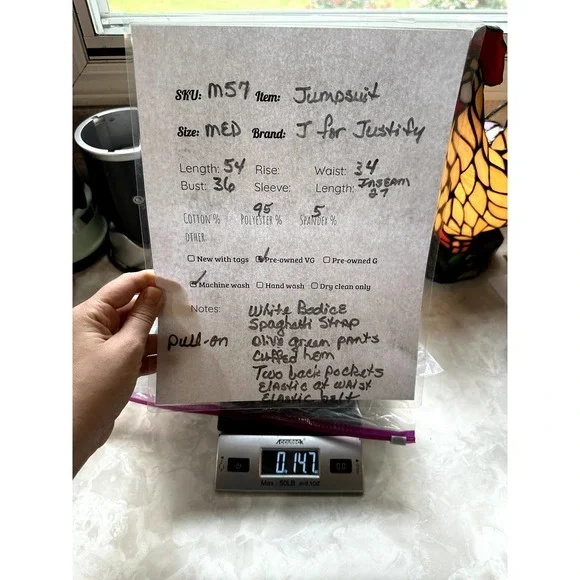 SKU: M57 Item: Jumpsuit
Size: MED Brand: J for Justify
Length: 54 Rise: Waist: 34
Bust: 36 Sleeve: Length: Inseam 27
Cotton % 95 Polyester % 5 Spandex %
Other:
New with tags Pre-owned VG Pre-owned G
Machine wash Hand wash Dry clean only
Notes: White Bodice
Spaghetti Strap
pull-on Olive green pants
Cuffed hem
Two back pockets
Elastic at waist
Elastic belt
Accuteck
0.147
Max 50LB